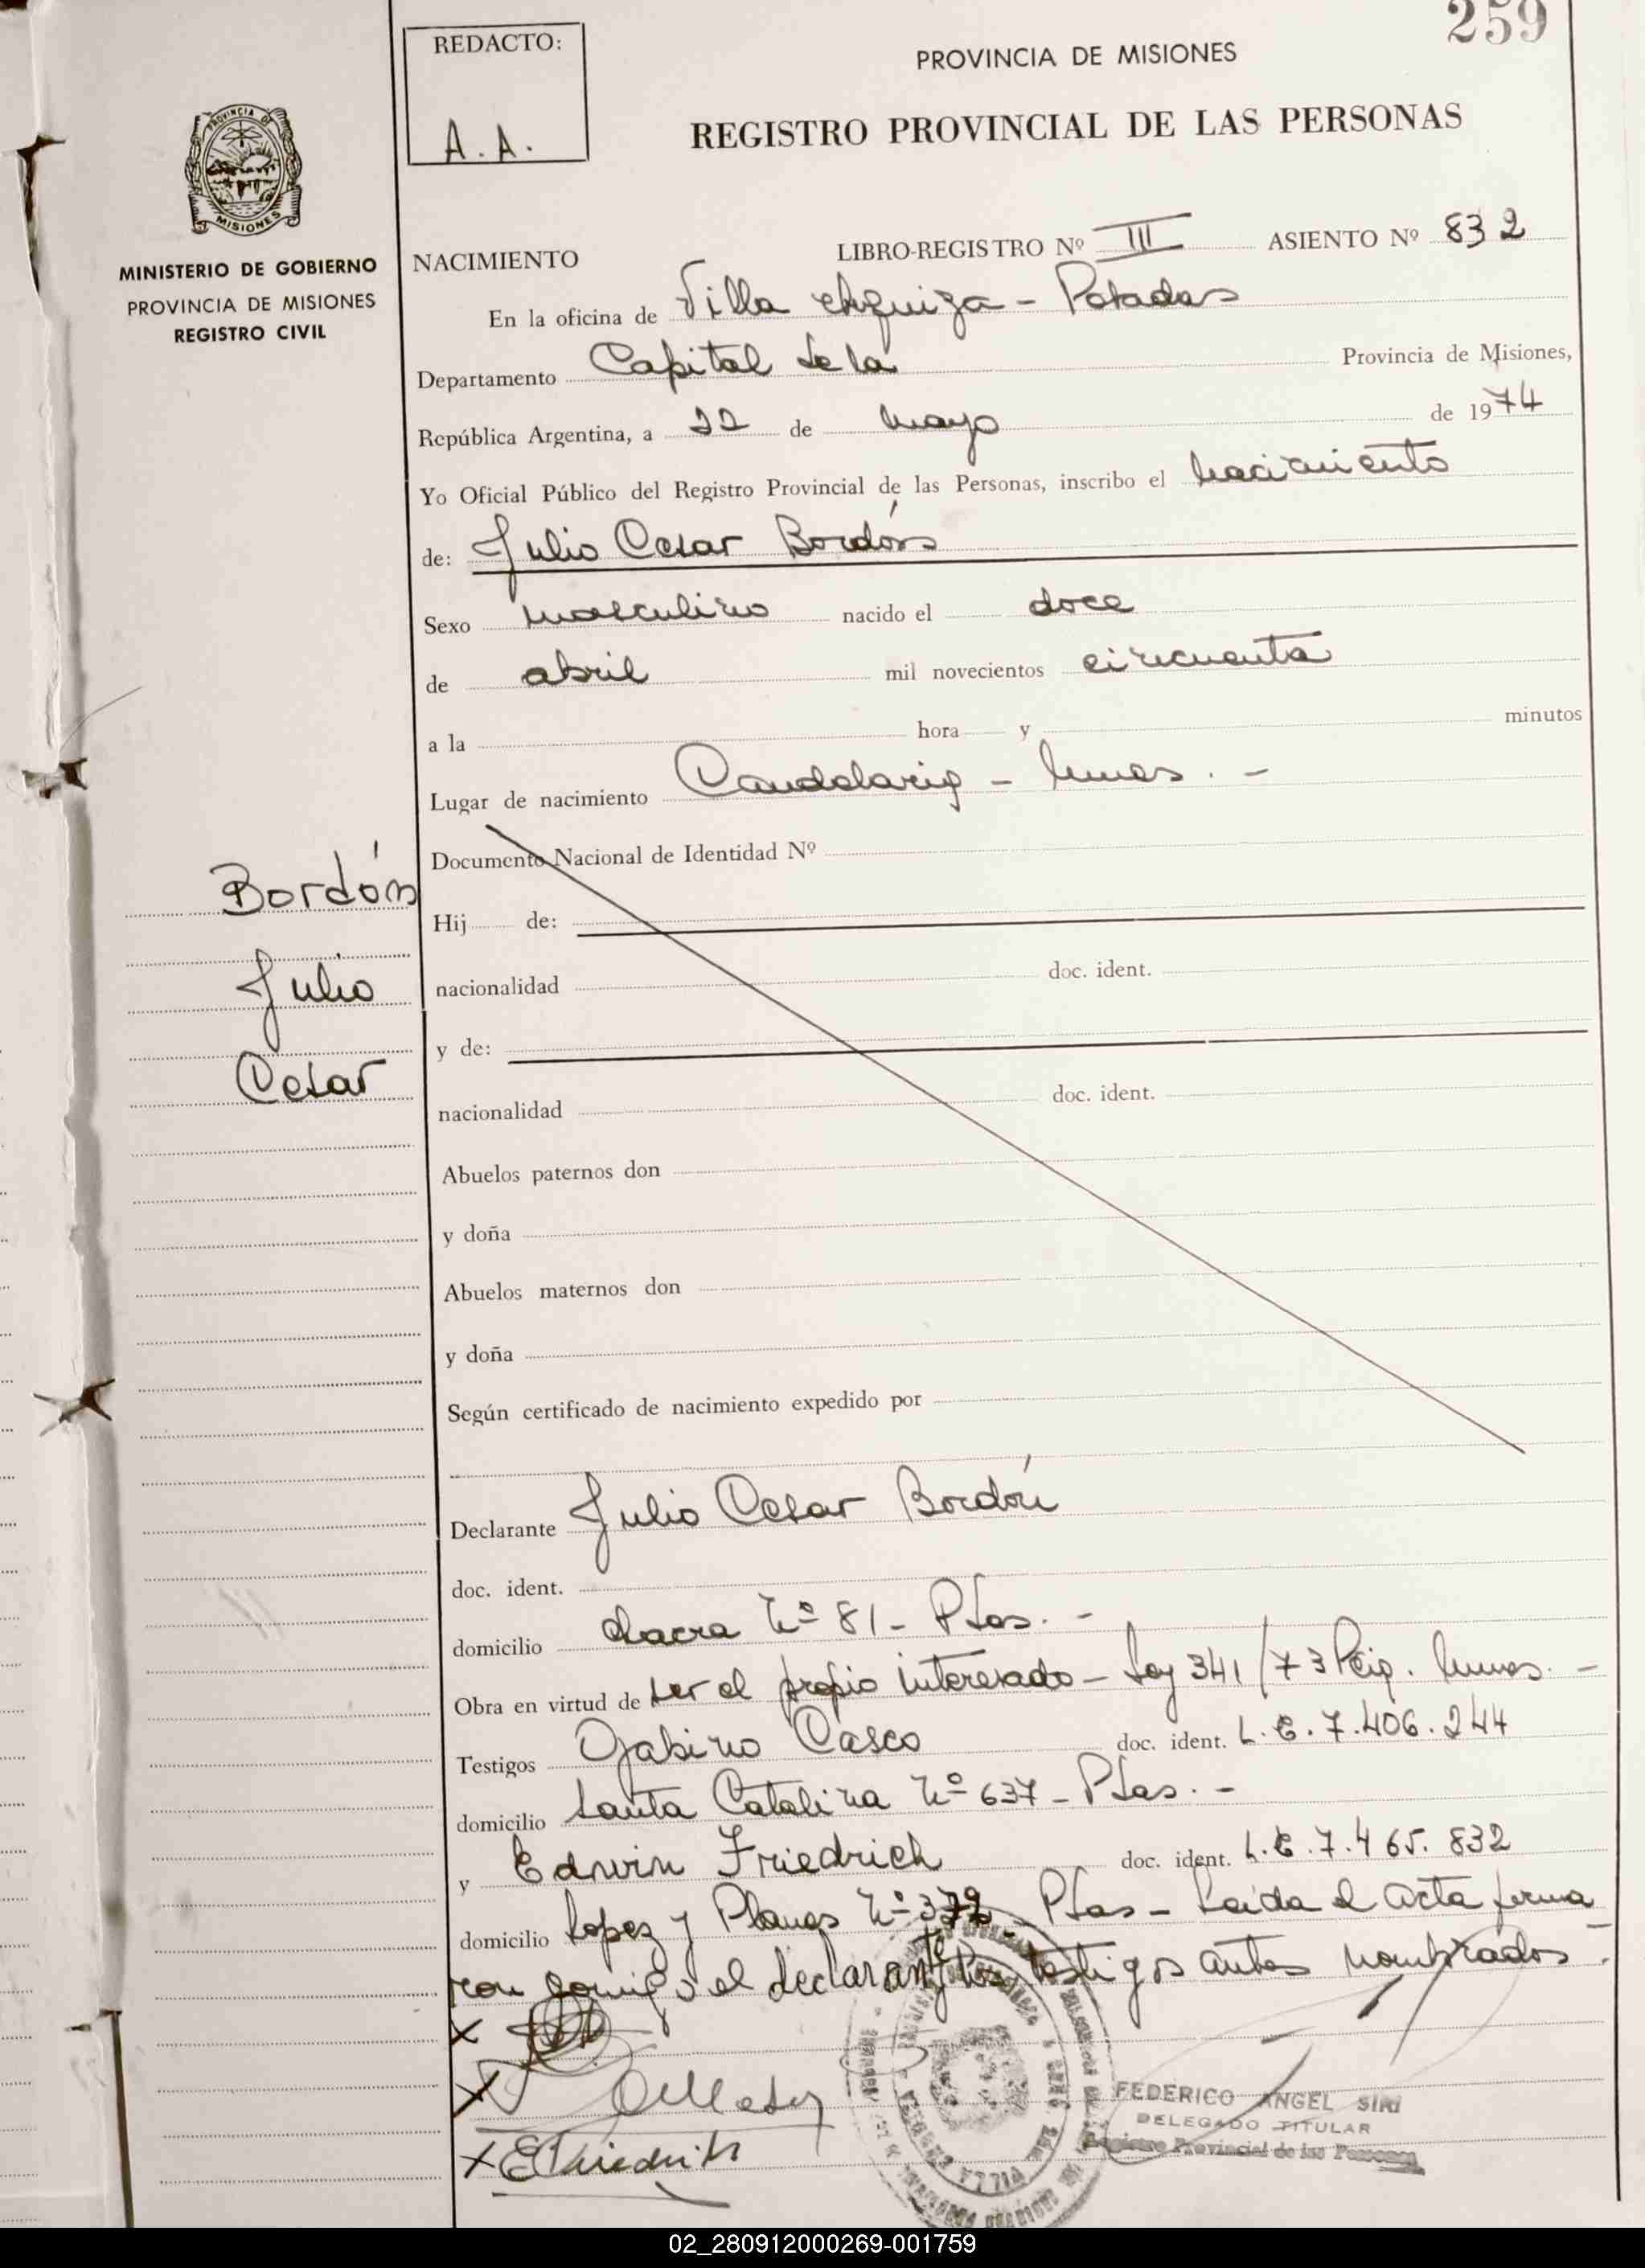 259
REDACTO:
A. A.
PROVINCIA DE MISIONES
REGISTRO PROVINCIAL DE LAS PERSONAS
PROVINCIA DE
MISIONES
MINISTERIO DE GOBIERNO
PROVINCIA DE MISIONES
REGISTRO CIVIL
NACIMIENTO LIBRO-REGISTRO Nº III ASIENTO Nº 832
En la oficina de Villa Urquiza - Posadas
Departamento Capital de la Provincia de Misiones,
República Argentina, a 22 de mayo de 1974
Yo Oficial Público del Registro Provincial de las Personas, inscribo el nacimiento
de: Julio Cesar Bordón
Sexo masculino nacido el doce
de abril mil novecientos cincuenta
a la hora y minutos
Lugar de nacimiento Candelaria - Mnes. -
Documento Nacional de Identidad Nº
Bordón
Hij de:
Julio
nacionalidad doc. ident.
y de:
Cesar
nacionalidad doc. ident.
Abuelos paternos don
y doña
Abuelos maternos don
y doña
Según certificado de nacimiento expedido por
Declarante Julio Cesar Bordón
doc. ident.
domicilio chacra Nº 81 - Pdas. -
Obra en virtud de ser el propio interesado - Ley 341/73 Pcia. Mnes. -
Testigos Gabino Casco doc. ident. L.E. 7.406.244
domicilio Santa Catalina Nº 637 - Pdas. -
y Edwin Friedrich doc. ident. L.E. 7.465.832
domicilio Lopez y Planes Nº Pdas - Leida el acta firma
ron conmigo el declarante, los testigos antes nombrados.
X
X
X E Friedrich
FEDERICO ANGEL SIRI
DELEGADO TITULAR
Registro Provincial de las Personas
02_280912000269-001759